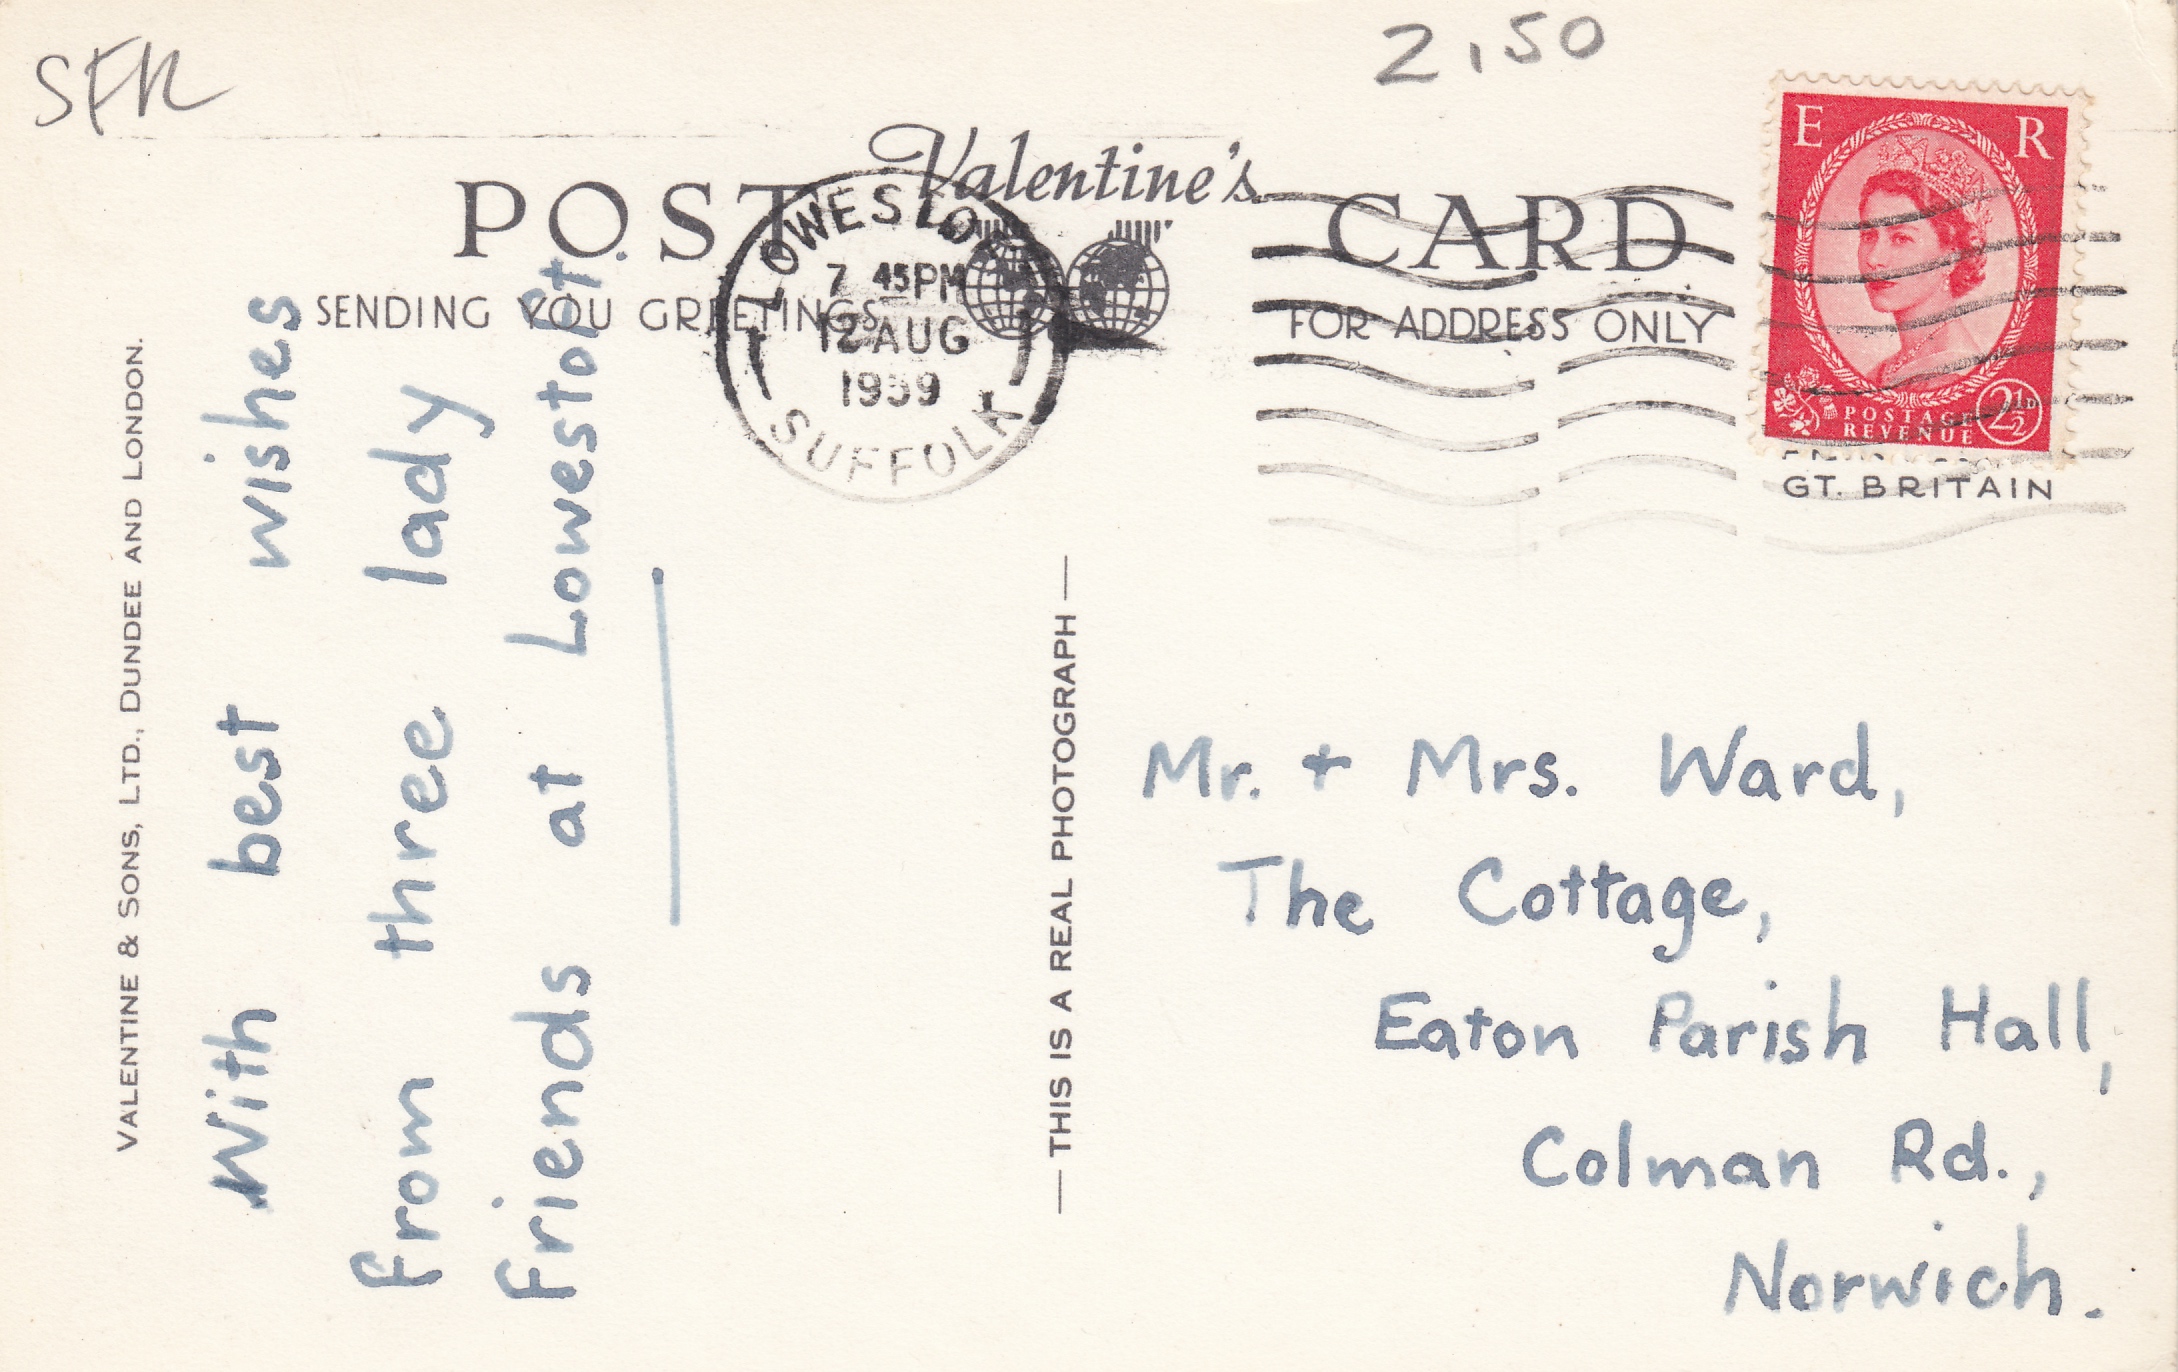 SFR
2,50
Valentine's
POST CARD
SENDING YOU GREETINGS
FOR ADDRESS ONLY
LOWESTOFT
7 45PM
12 AUG
1959
SUFFOLK
E R
POSTAGE
REVENUE
2½D
GT. BRITAIN
VALENTINE & SONS, LTD., DUNDEE AND LONDON.
With best wishes
from three lady
friends at Lowestoft.
— THIS IS A REAL PHOTOGRAPH —
Mr. + Mrs. Ward,
The Cottage,
Eaton Parish Hall,
Colman Rd.,
Norwich.